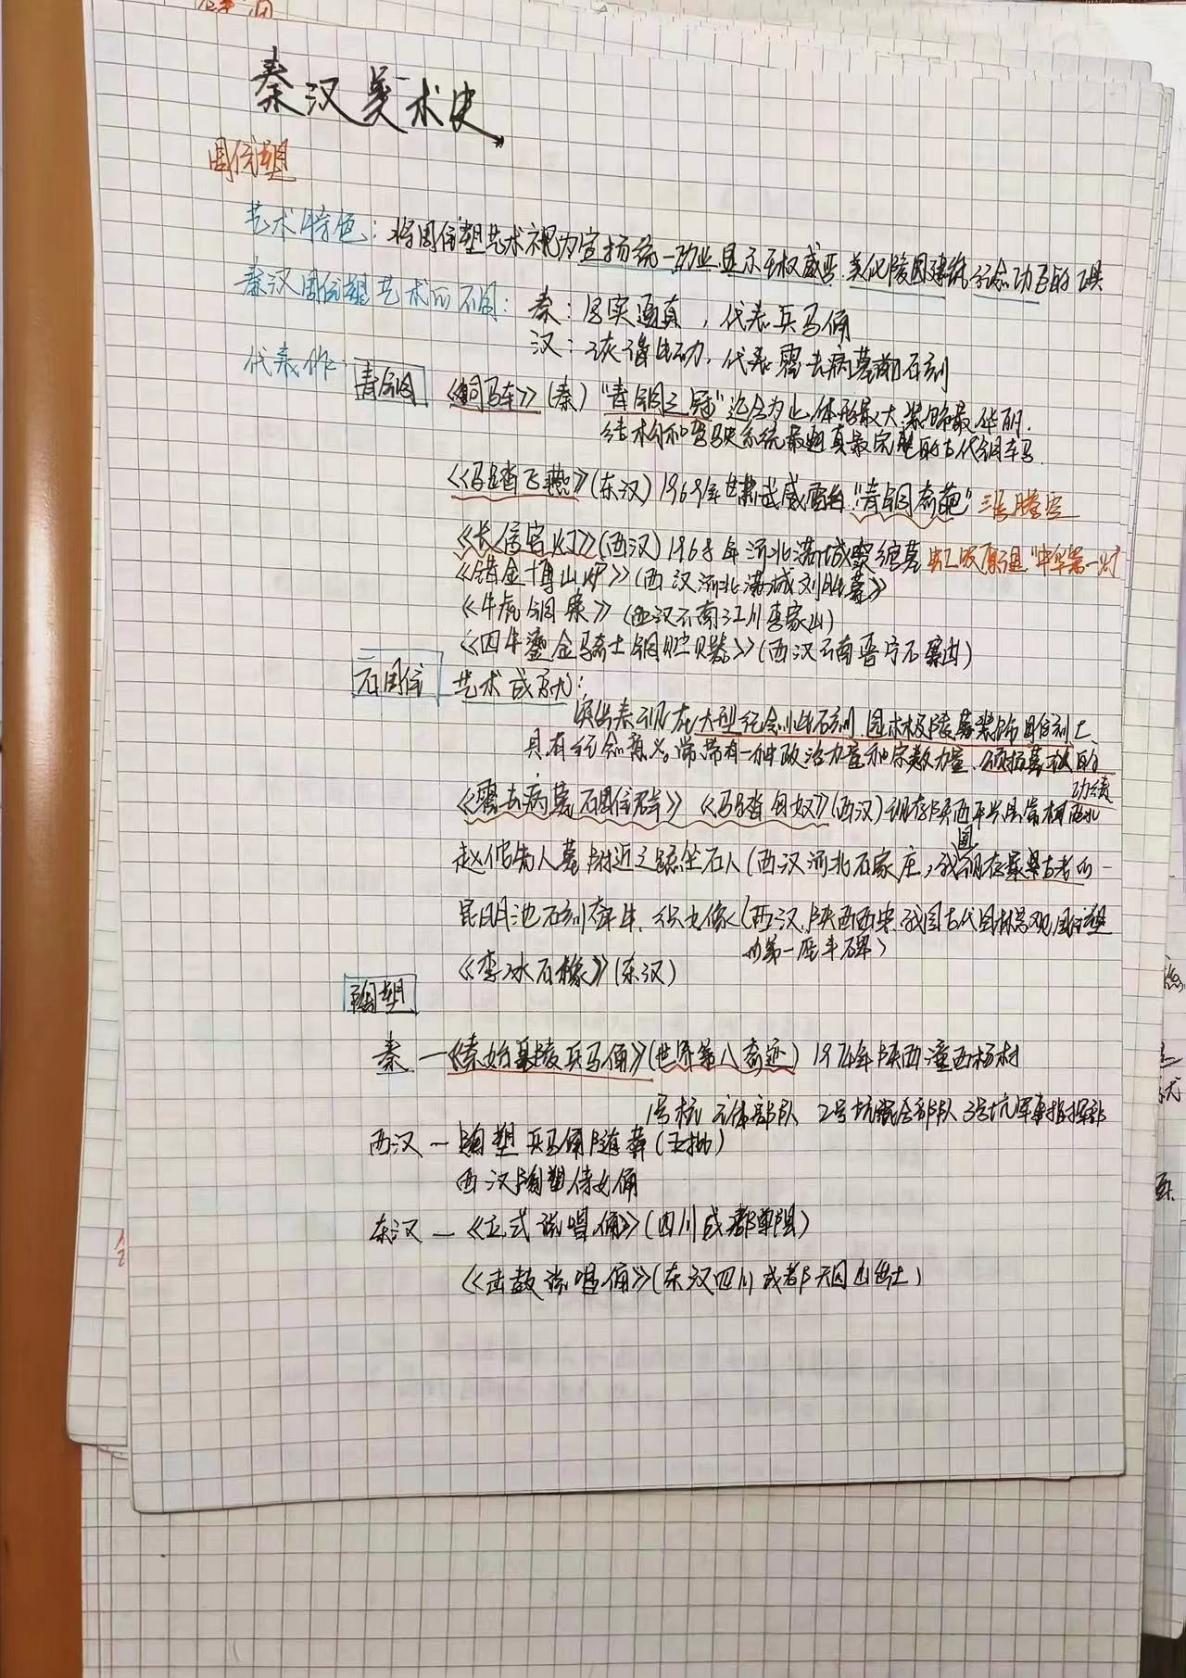 秦汉美术史
雕塑
艺术特色：将雕塑艺术视为宣扬统一功业、显示王权威严、美化陵园建筑、纪念功臣的工具
秦汉雕塑艺术的不同：秦：写实逼真，代表兵马俑
汉：诙谐生动，代表霍去病墓前石刻
代表作：
青铜
《铜马车》（秦）“青铜之冠”迄今为止，体形最大，装饰最华丽，
结构和驾驶系统最逼真最完整的古代铜车马
《马踏飞燕》（东汉）1969年甘肃武威雷台“青铜奇葩”三足腾空
《长信宫灯》（西汉）1968年河北满城窦绾墓 “中华第一灯”
《错金博山炉》（西汉河北满城刘胜墓》
《牛虎铜案》（西汉云南江川李家山）
《四牛鎏金骑士铜贮贝器》（西汉云南晋宁石寨山）
石雕 艺术成就：
突出表现在大型纪念性石刻、园林极陵墓装饰雕刻上、
具有纪念意义。常带有一种政治力量和宗教力量、颂扬墓主的
功绩
《霍去病墓石雕群》《马踏匈奴》（西汉）现存陕西平县茂村西北
赵佗先人墓附近之跪坐石人（西汉河北石家庄，我国现存最早古老的一
昆明池石刻牵牛、织女像（西汉，陕西西安，我国古代园林景观雕塑
的第一座丰碑）
《李冰石像》（东汉）
陶塑
秦—《秦始皇陵兵马俑》（世界第八奇迹）1974年陕西潼西杨村
1号坑主体部队、2号坑混合部队 3号坑军事指挥部
西汉—陶塑兵马俑随葬
西汉陶塑侍女俑
东汉—《立式说唱俑》（四川成都郫县）
《击鼓说唱俑》（东汉四川成都天回山出土）